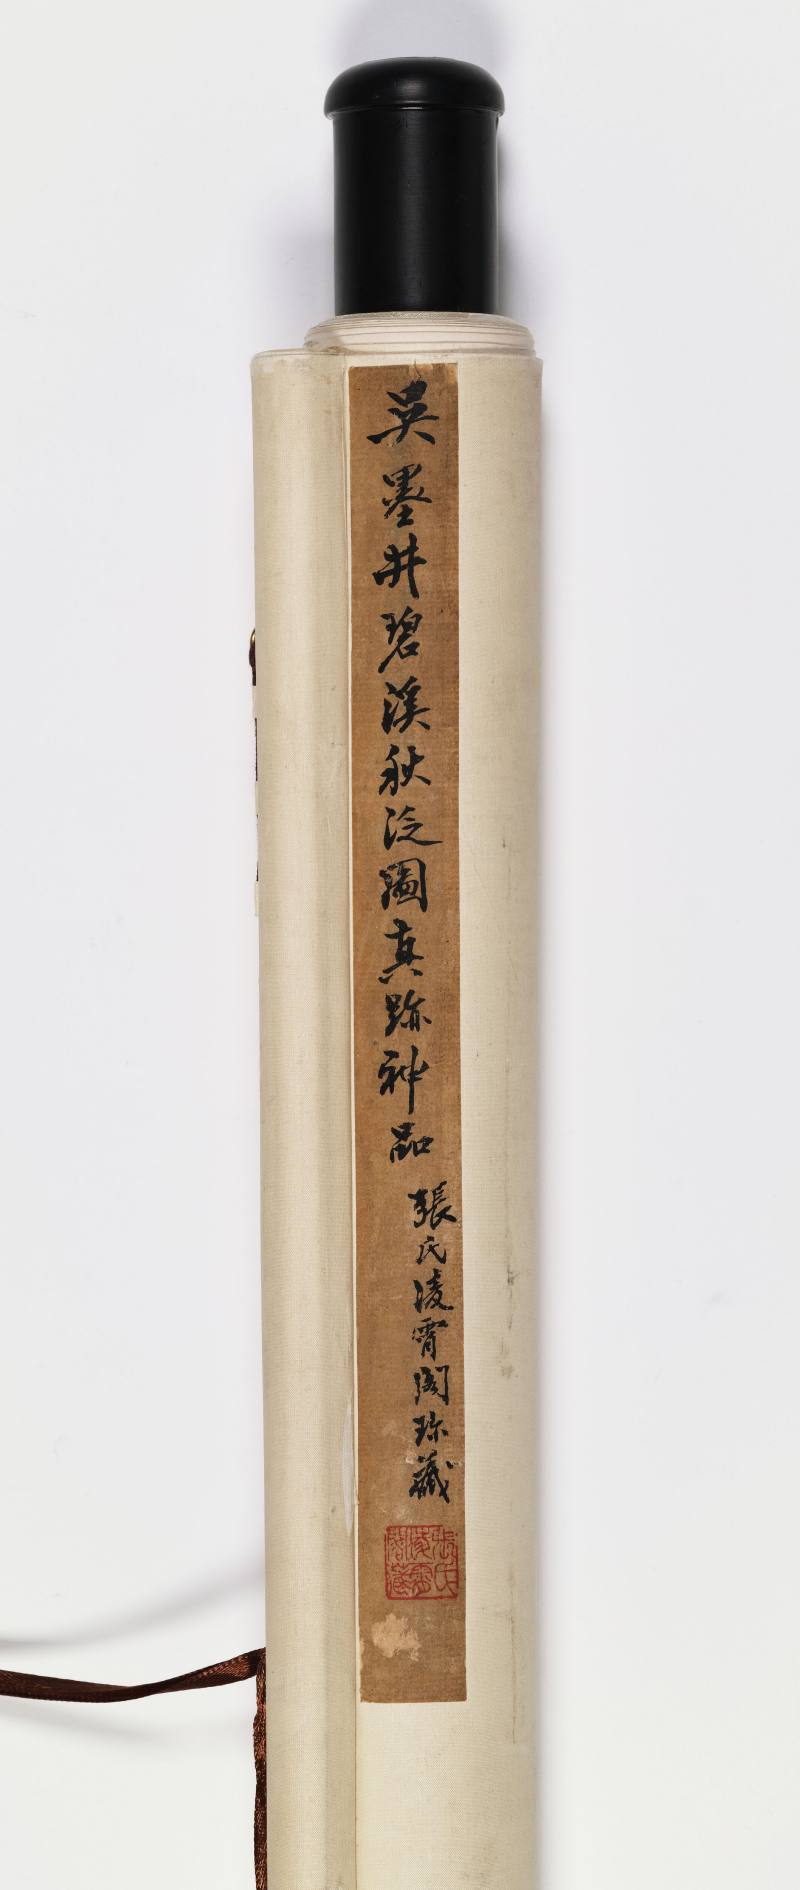 吳墨井碧溪秋泛圖真跡神品
張氏凌霄閣珍藏
張氏凌霄閣藏